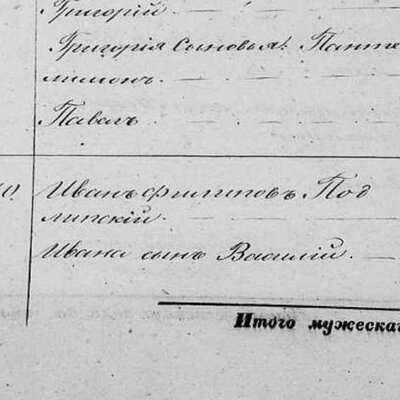 Григорій.
Григорія Сыновья: Панте
лимонъ.
Павелъ
0. Иванъ Филиповъ Под
липскій.
Ивана сынъ Василій.
Итого мужескаг